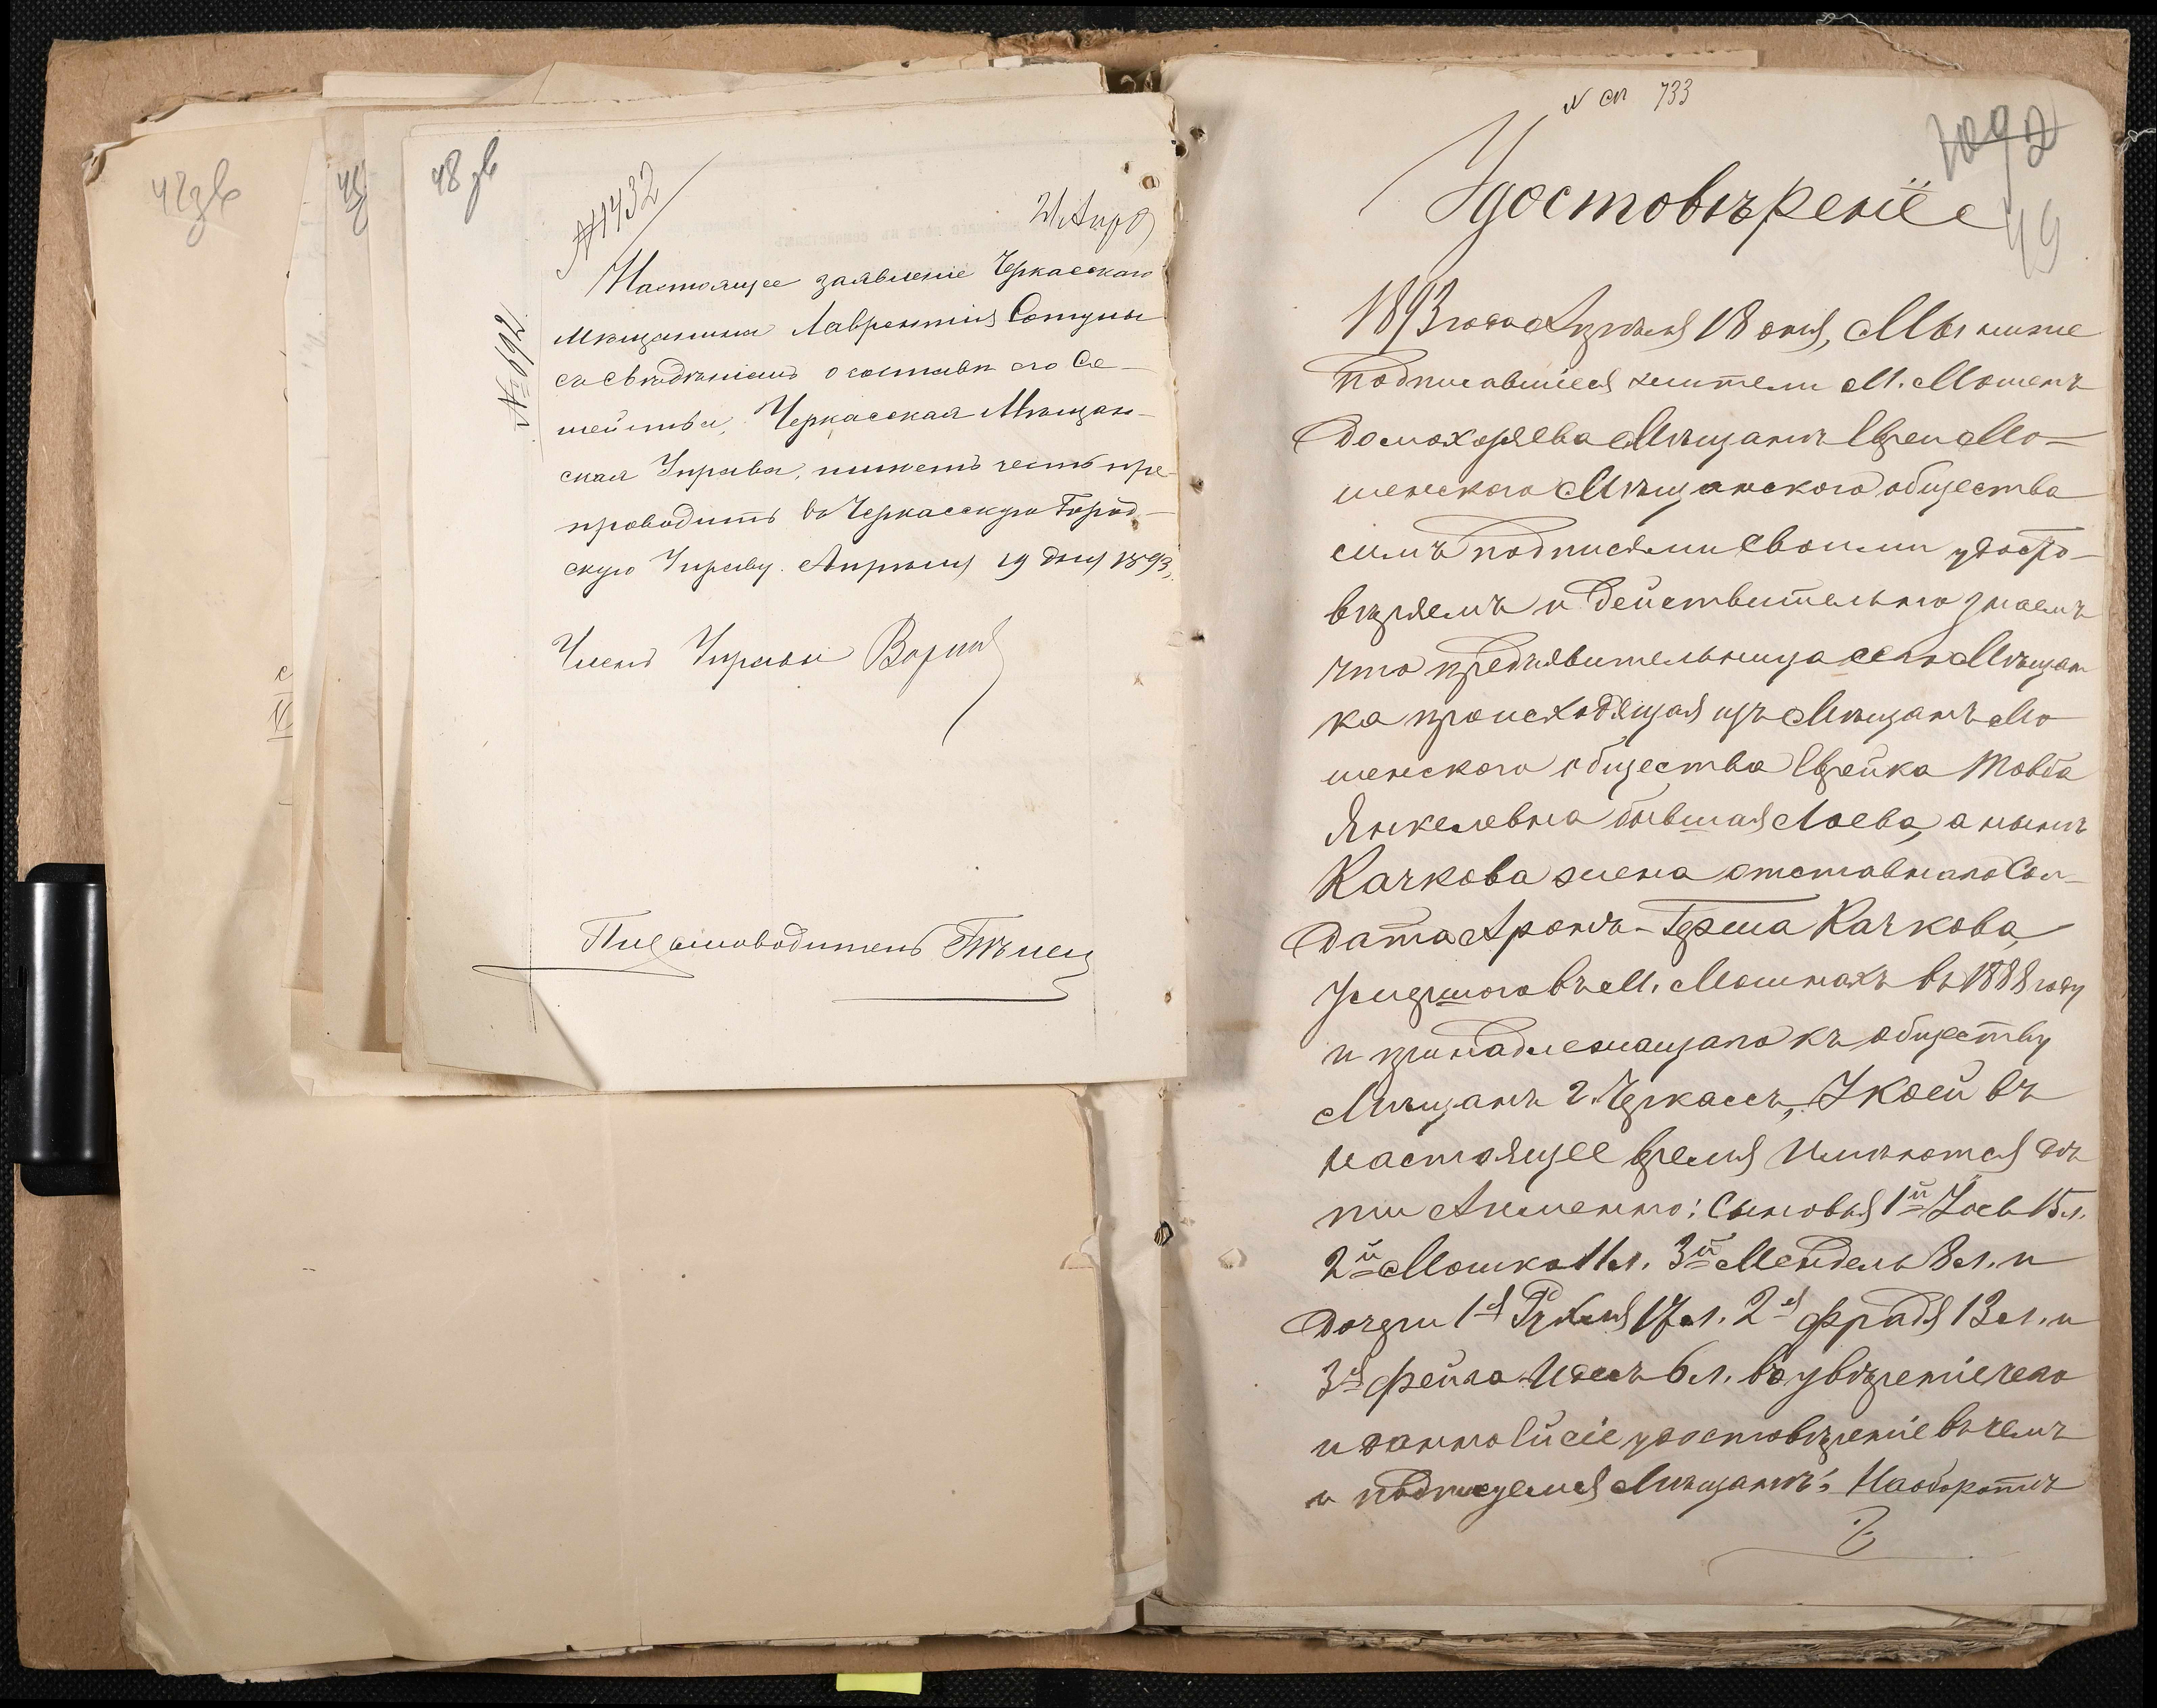 47 зв
48 зв
№ 1432
21 Апр
№ 692
Настоящее заявленіе Черкасскаго
мѣщанина Лаврентія Сотулы
съ свѣдѣніемъ о составѣ его Се-
мейства, Черкасская Мѣщан-
ская Управа, имѣетъ честь пре-
проводить въ Черкасскую Город-
скую Управу. Апрѣля 19 дня 1893
Членъ Управы
Письмоводитель
№ сп 733
49
Удостовѣреніе
1893 года Апрѣля 18 дня, Мы ниже
подписавшіеся жители М. Мошенъ
домохозяева Мѣщане Евреи Мо-
шенскаго Мѣщанскаго общества
симъ подписями своими удосто-
вѣряемъ и действительно знаемъ
что предъявительница сего Мѣщан
ка происходящая изъ Мѣщанъ Мо
шенскаго общества Еврейка Товба
Янкелевна бывшая Лоева, а нынѣ
Качкова жена отставнаго Сол-
дата Аронъ-Герша Качкова,
Умершого въ М. Мошнахъ въ 1888 году
и принадлежащаго къ обществу
Мѣщанъ г. Черкассъ, У коей въ
настоящее время Имѣются дѣ
ти Аименно: Сыновья 1й Іось 15 л.
2й Мошко 11 л. 3й Мендель 8 л. и
дочери 1я Рухля 17 л. 2я Фрадя 13 л. и
3я Фейга 6 л. въ увѣреніе чего
и данно Ей сіе удостовѣреніе въ чемъ
и подписуемся Мѣщане: На оборотѣ